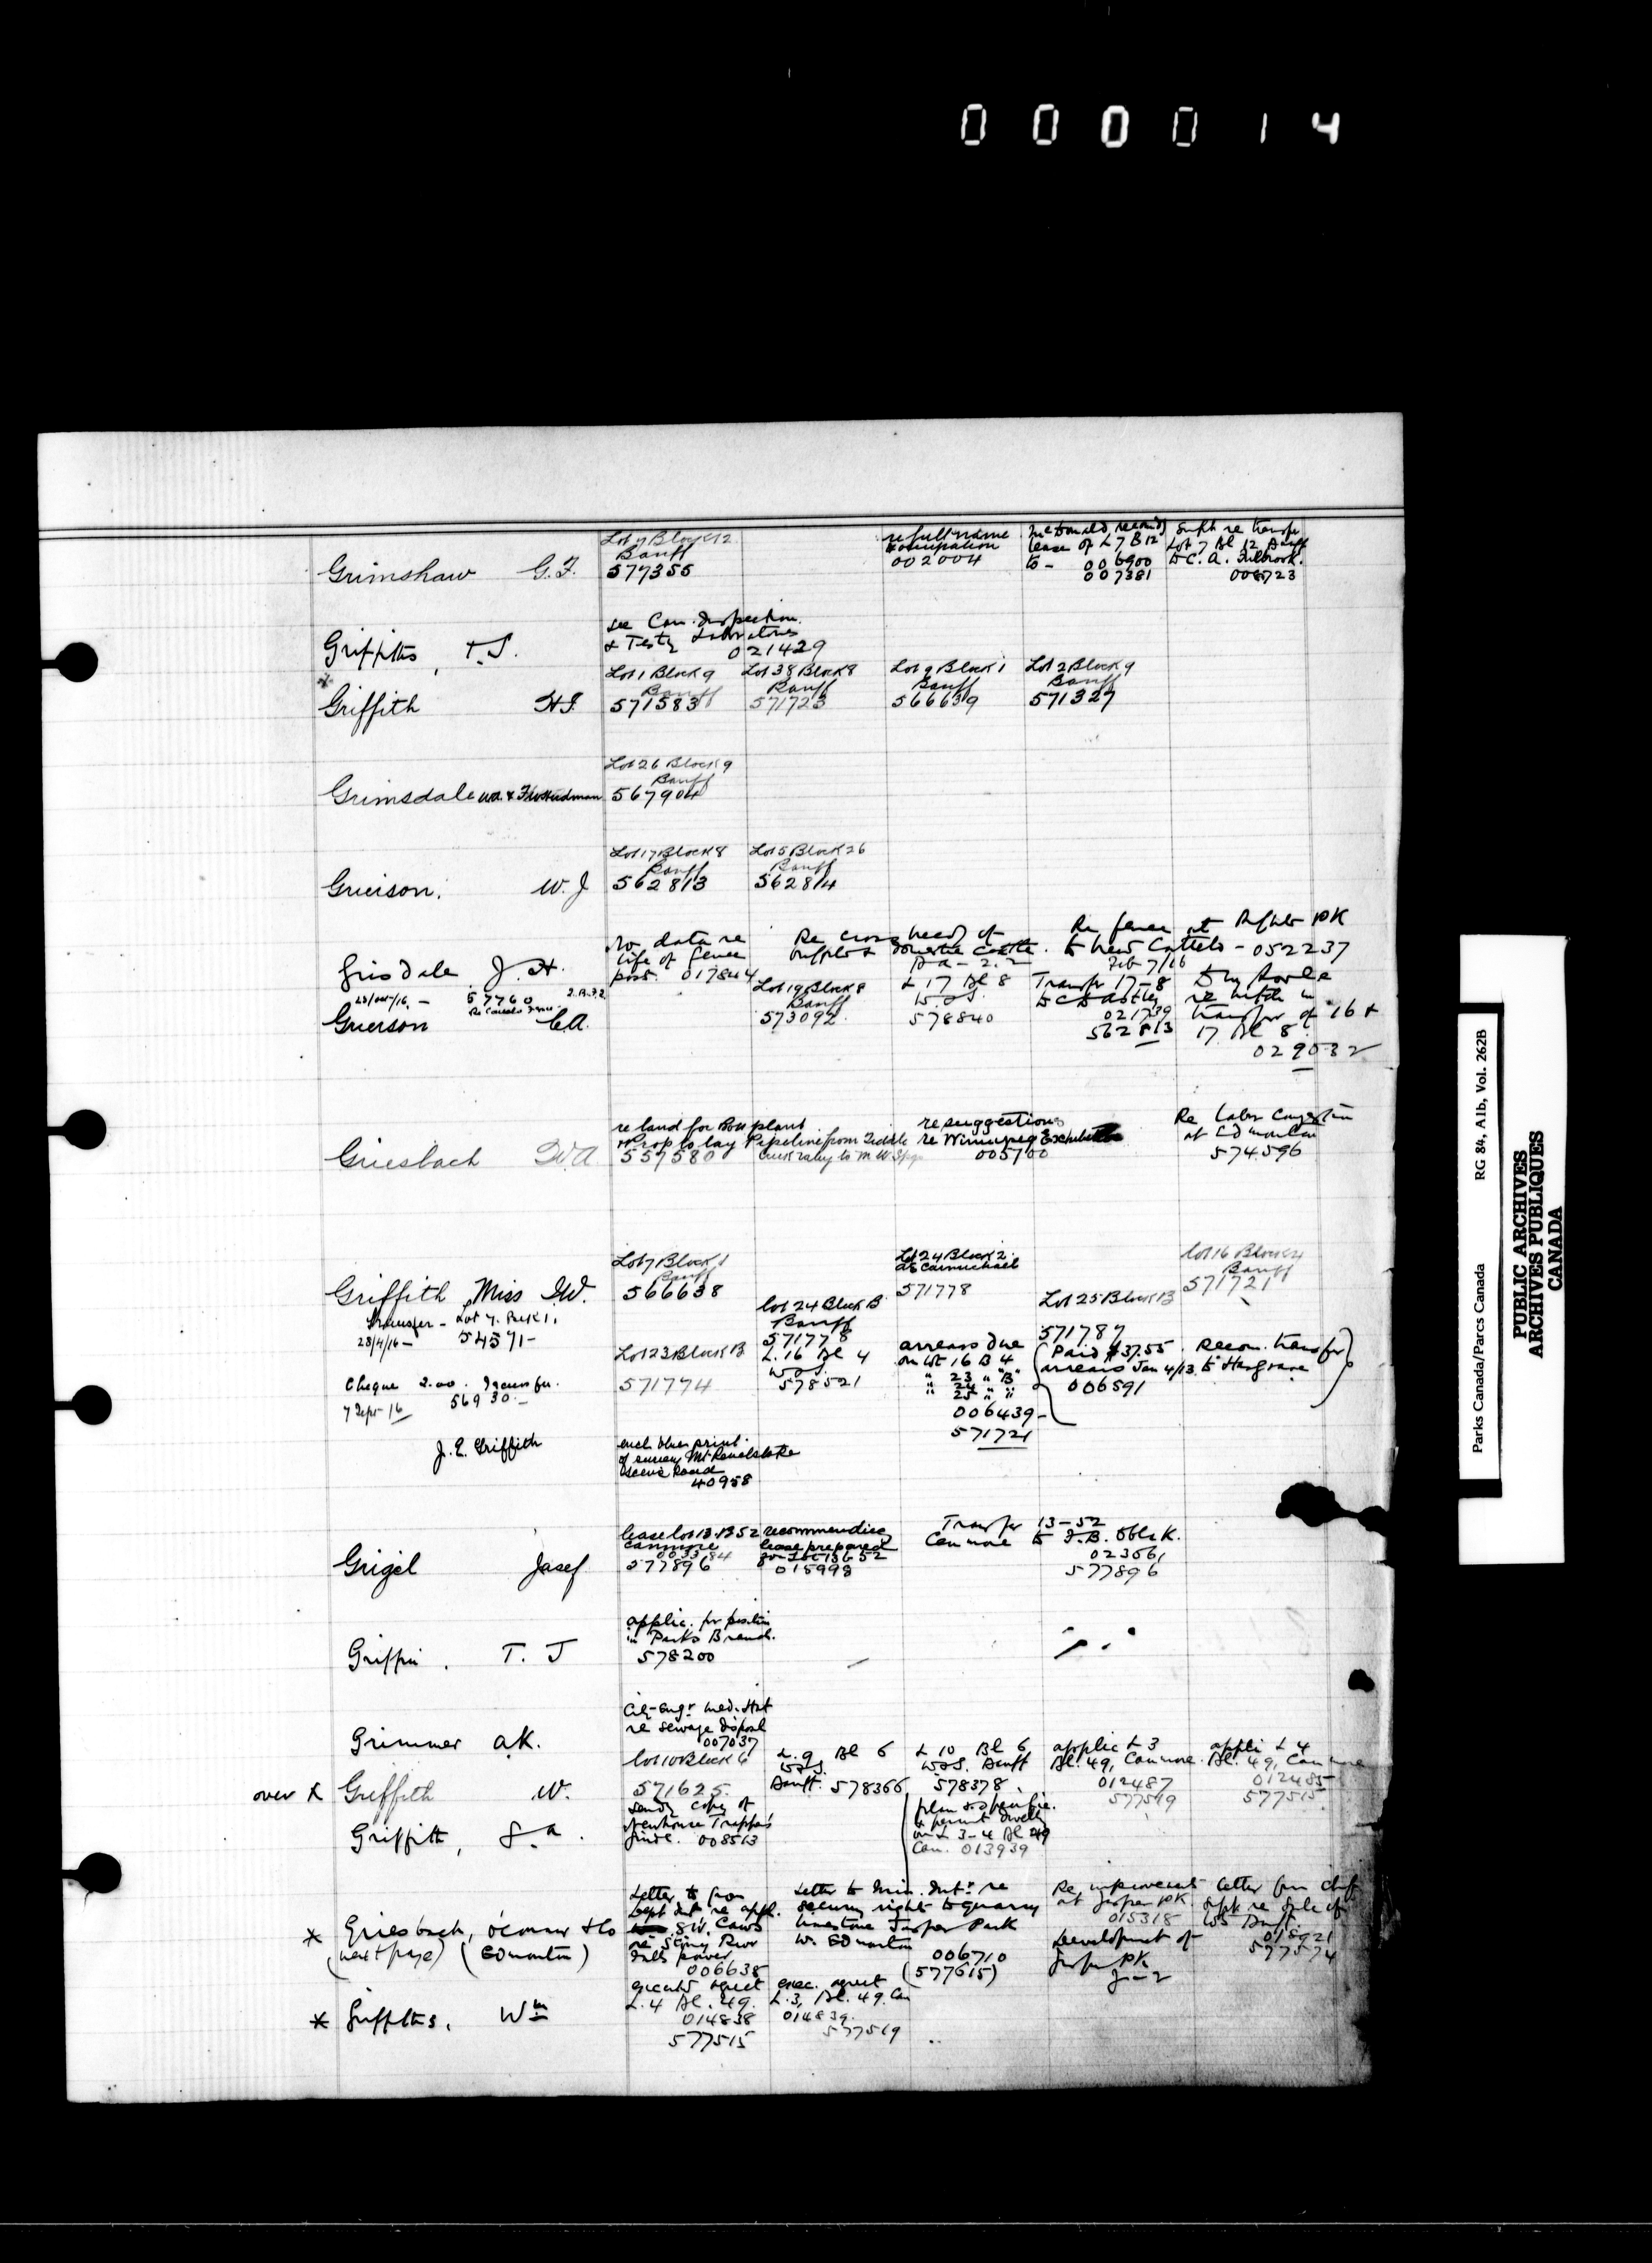 000014
Grimshaw G.F.
Lot 7 Block 12
Banff
577355
re full name
occupation
002004
lease of L 7 B 12
to - 006900
007381
Supt re transfer
Lot 7 Bl 12 Banff
to C.A.
008723
Griffiths, T.S.
see Can. Inspection
& Testg Laboratories
021429
Griffith H.J.
Lot 1 Block 9
Banff
571583
Lot 38 Block 8
Banff
571723
Lot 9 Block 1
Banff
566639
Lot 2 Block 9
Banff
571327
Grimsdale
Lot 26 Block 9
Banff
567904
Grierson, W.J
Lot 17 Block 8
Banff
562813
Lot 5 Block 26
Banff
562814
Grisdale J.H.
No data re
life of fence
post. 017844
Re cross breedg of
buffalo & domestic cattle.
Re fence at Buffalo PK
052237
Feb 7/16
57760
Grierson C.A.
Lot 19 Block 8
Banff
573092
L 17 Bl 8
W & S.
578840
Transfer 17-8
021739
562813
transfer of 16 &
17 Bl 8
029032
Griesbach W.A
re land for Boss plant
& Prop to lay Pipeline from
557580
re suggestions
re Winnipeg Exhibition
005100
Re Labor
at Edmonton
574596
Griffith Miss W.
Transfer - Lot 7. Block 1.
28/4/16 - 54571 -
Cheque 2.00. Transfer.
7 Sept 16 56930 -
Lot 7 Block 1
Banff
566638
Lot 23 Block B
571774
Lot 24 Block B
Banff
571778
L. 16 Bl 4
W & S.
578521
Lot 24 Block 2.
as Carmichael
571778
arrears due
on Lt 16 B 4
" 23 " B"
" 24 " "
" 25 " "
006439 -
571721
Lot 25 Block B
571787
(Paid $37.55
arrears Jan 4/13
006591
Lot 16 Block 4
Banff
571721
Recom. transfer
to Hargrave
J.E. Griffith
encl. blue print
of survey Mt Revelstoke
Scenic Road
40958
Grigel Josef
lease lot 13 B 52
Canmore
003384
577896
recommending
lease prepared
for Lot 13 B 52
015998
Transfer 13-52
Canmore to
023661
577896
Griffin, T. J
applic. for position
in Parks Branch.
578200
Grimmer A.K.
City Engr. Med. Hat
re sewage disposal
007037
over X Griffith W.
Lot 10 Block 6
571625
L. 9 Bl 6
W&S.
Banff. 578366
L 10 Bl 6
W&S. Banff
578378
applic L 3
Bl. 49, Canmore
012487
577519
appli L 4
Bl. 49, Canmore
012485
577515
Griffith, S.A.
sendg copy of
Trappers
Guide. 008513
plan & specific.
& permit dwellg
on L 3-4 Bl 49
Can. 013939
* Griesbach, O'Connor & Co
(next page) (Edmonton)
Letter to from
Dept Int re appl.
re Stony River
falls power
006638
Letter to Min. Intr re
securing rights to quarry
limestone Jasper Park
W. Edmonton
006710
(577615)
Re improvements
at Jasper PK
015318
Development of
Jasper PK
J-2
Letter from chief
Supt re sale of
018921
577574
* Griffiths, Wm
execute agreet
L. 4 Bl. 49.
014838
577515
exec. agreet
L. 3, Bl. 49. Can
014839
577519
Parks Canada/Parcs Canada RG 84, A1b, Vol. 262B
PUBLIC ARCHIVES
ARCHIVES PUBLIQUES
CANADA